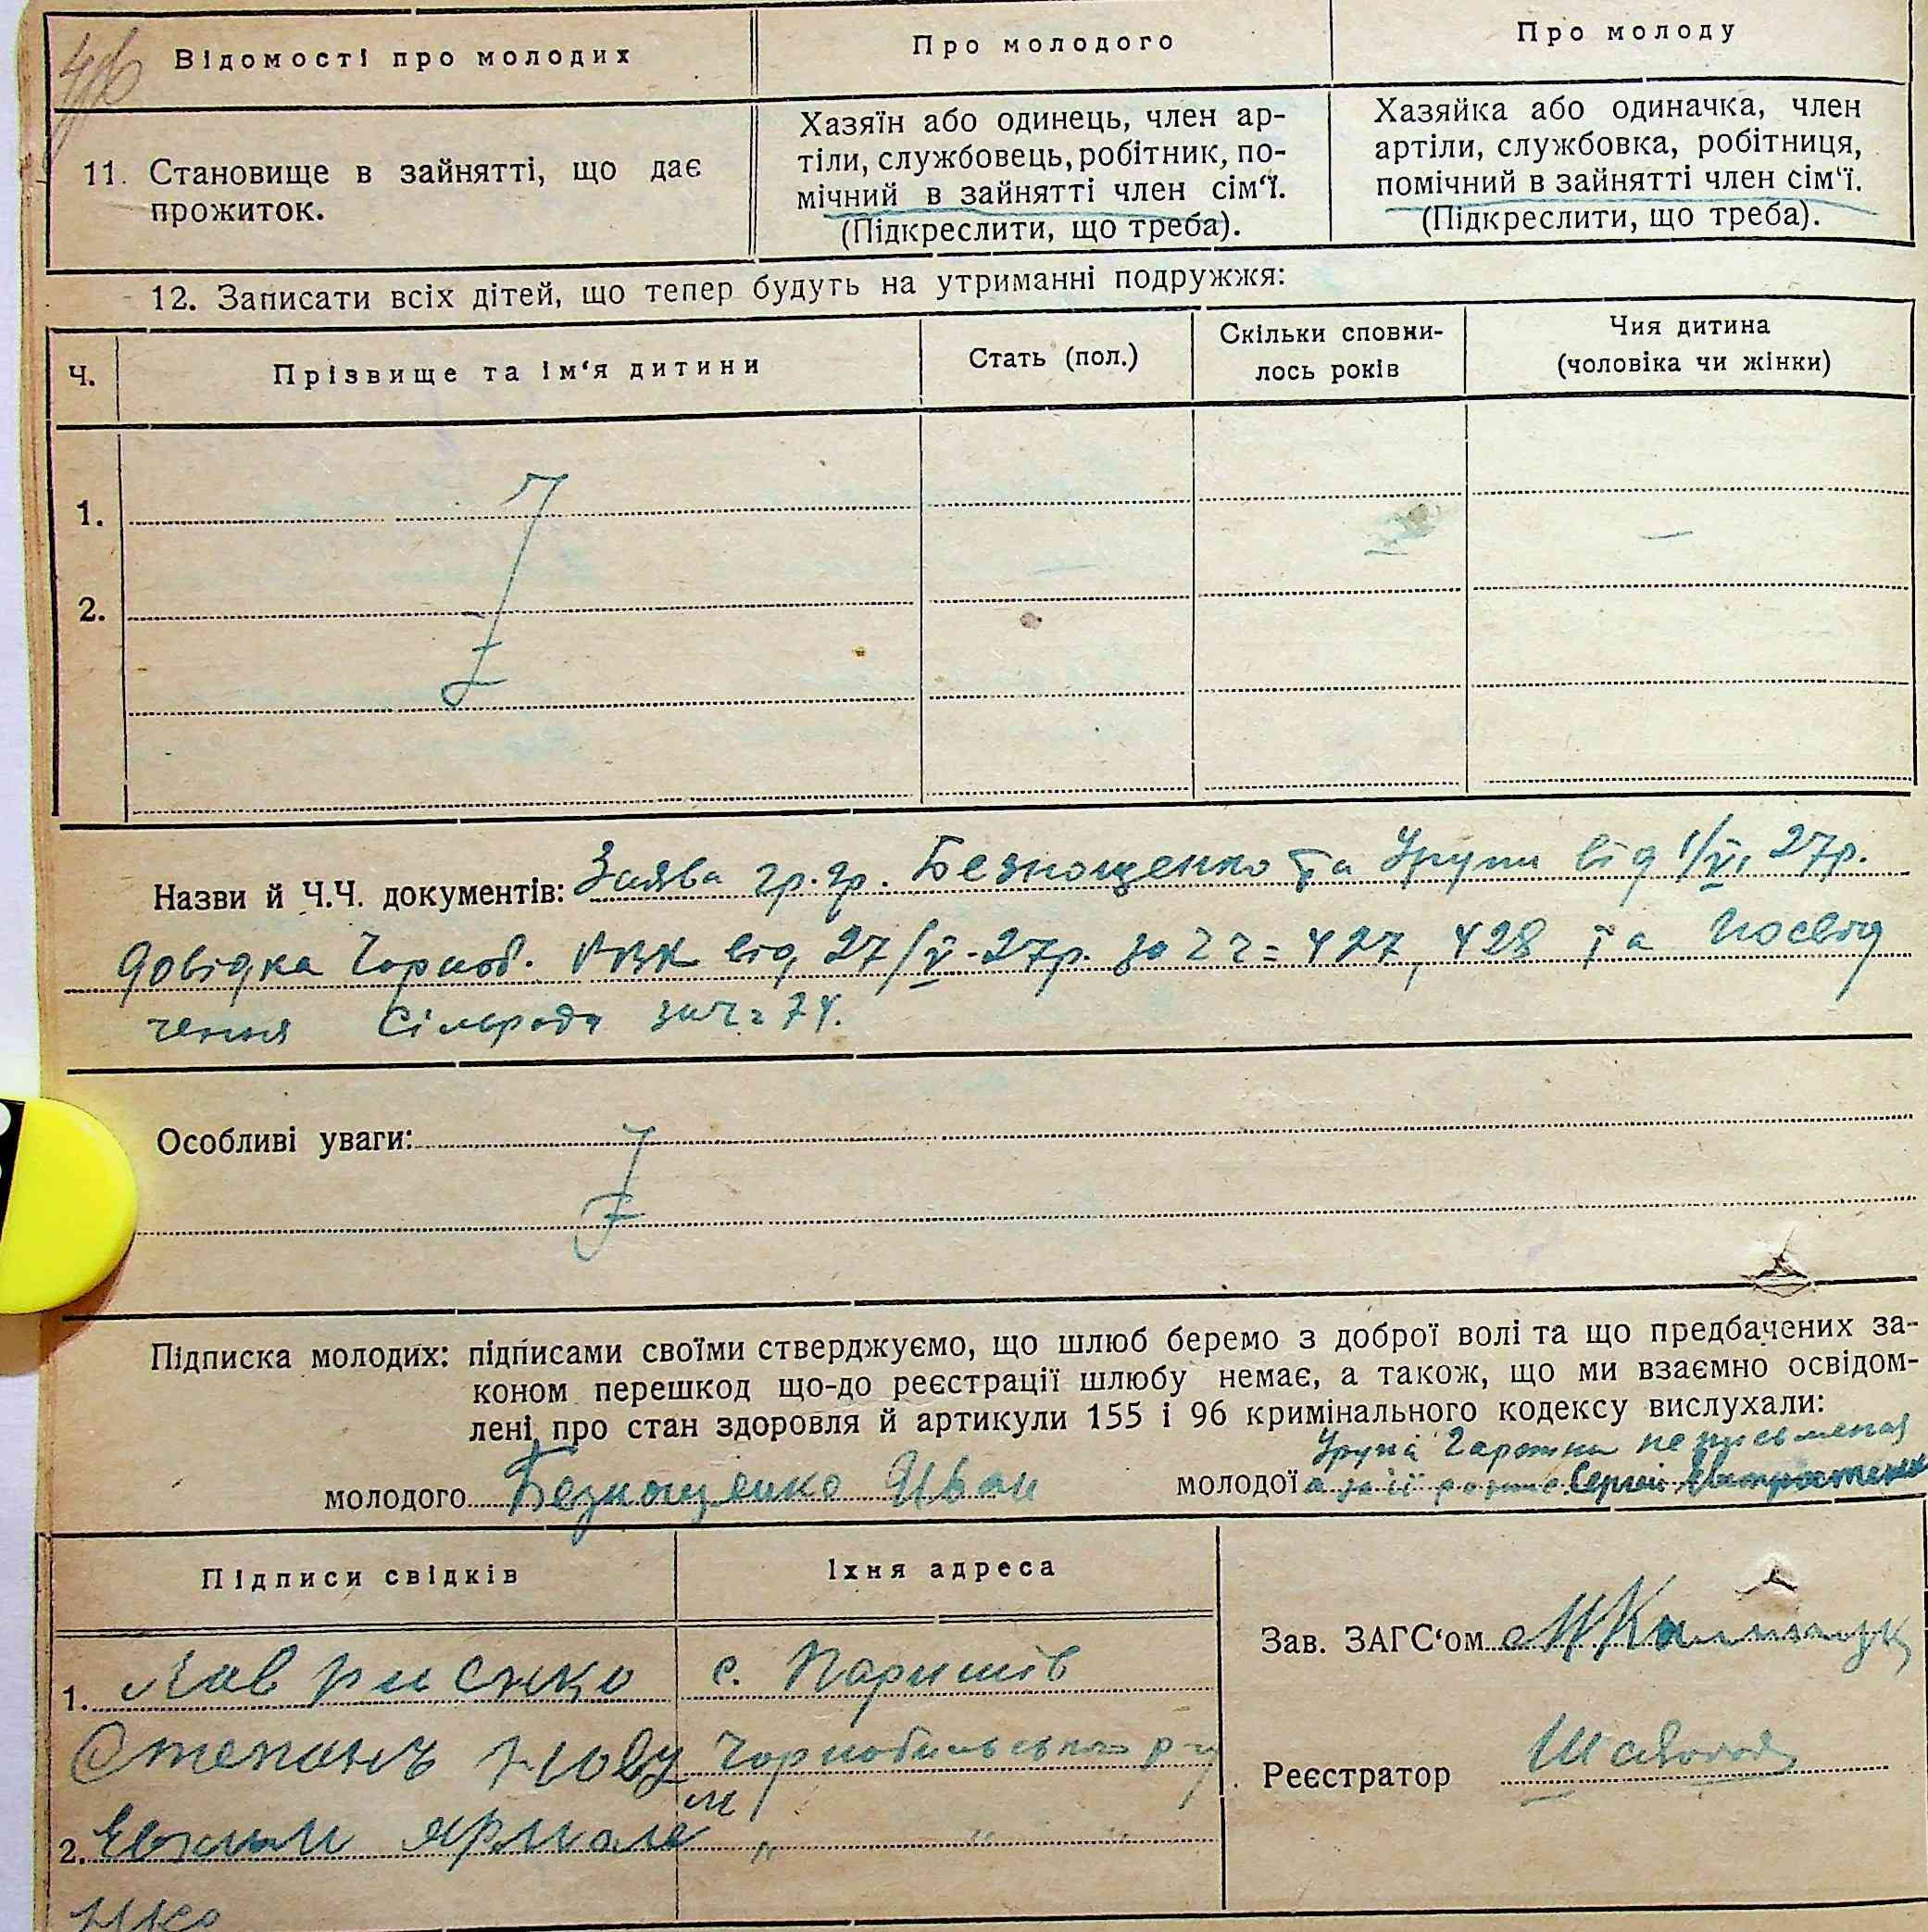 Відомості про молодих
Про молодого
Про молоду
11. Становище в зайнятті, що дає
прожиток.
Хазяїн або одинець, член ар-
тіли, службовець, робітник, по-
мічний в зайнятті член сім‘ї.
(Підкреслити, що треба).
Хазяйка або одиначка, член
артіли, службовка, робітниця,
помічний в зайнятті член сім‘ї.
(Підкреслити, що треба).
12. Записати всіх дітей, що тепер будуть на утриманні подружжя:
Ч.
Прізвище та ім‘я дитини
Стать (пол.)
Скільки сповни-
лось років
Чия дитина
(чоловіка чи жінки)
1.
2.
Назви й Ч.Ч. документів: Заява гр.гр. Безнощенко та Урупи від 1/VI 27р.
Довідка Чорноб. РВК від 27/V-27р. за 427, 428 та Посвід
чення Сільради за ч= 74.
Особливі уваги:
Підписка молодих: підписами своїми стверджуємо, що шлюб беремо з доброї волі та що предбачених за-
коном перешкод що-до реєстрації шлюбу немає, а також, що ми взаємно освідом-
лені про стан здоровля й артикули 155 і 96 кримінального кодексу вислухали:
молодого Безнощенко Иван
молодої а за її Сергій
Підписи свідків
Їхня адреса
1. с. Паришів
Степанъ Чорнобильського р-у
2. Евхим Ярмоле " " "
нко
Зав. ЗАГС‘ом
Реєстратор